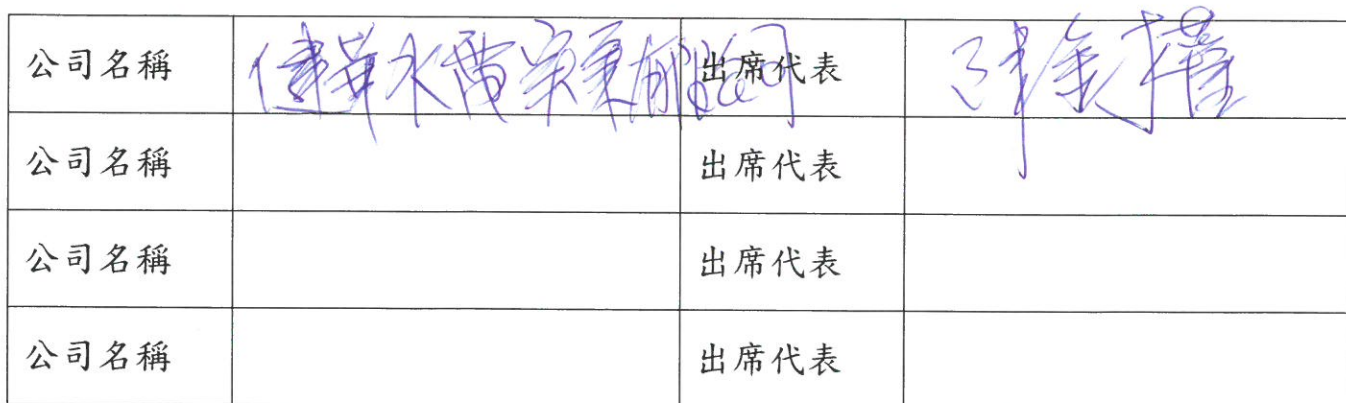 公司名稱 健華水電實業有限公司 出席代表
公司名稱 出席代表
公司名稱 出席代表
公司名稱 出席代表